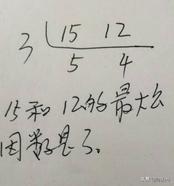 3 15 12
5 4
15和12的最大公
因数是3。